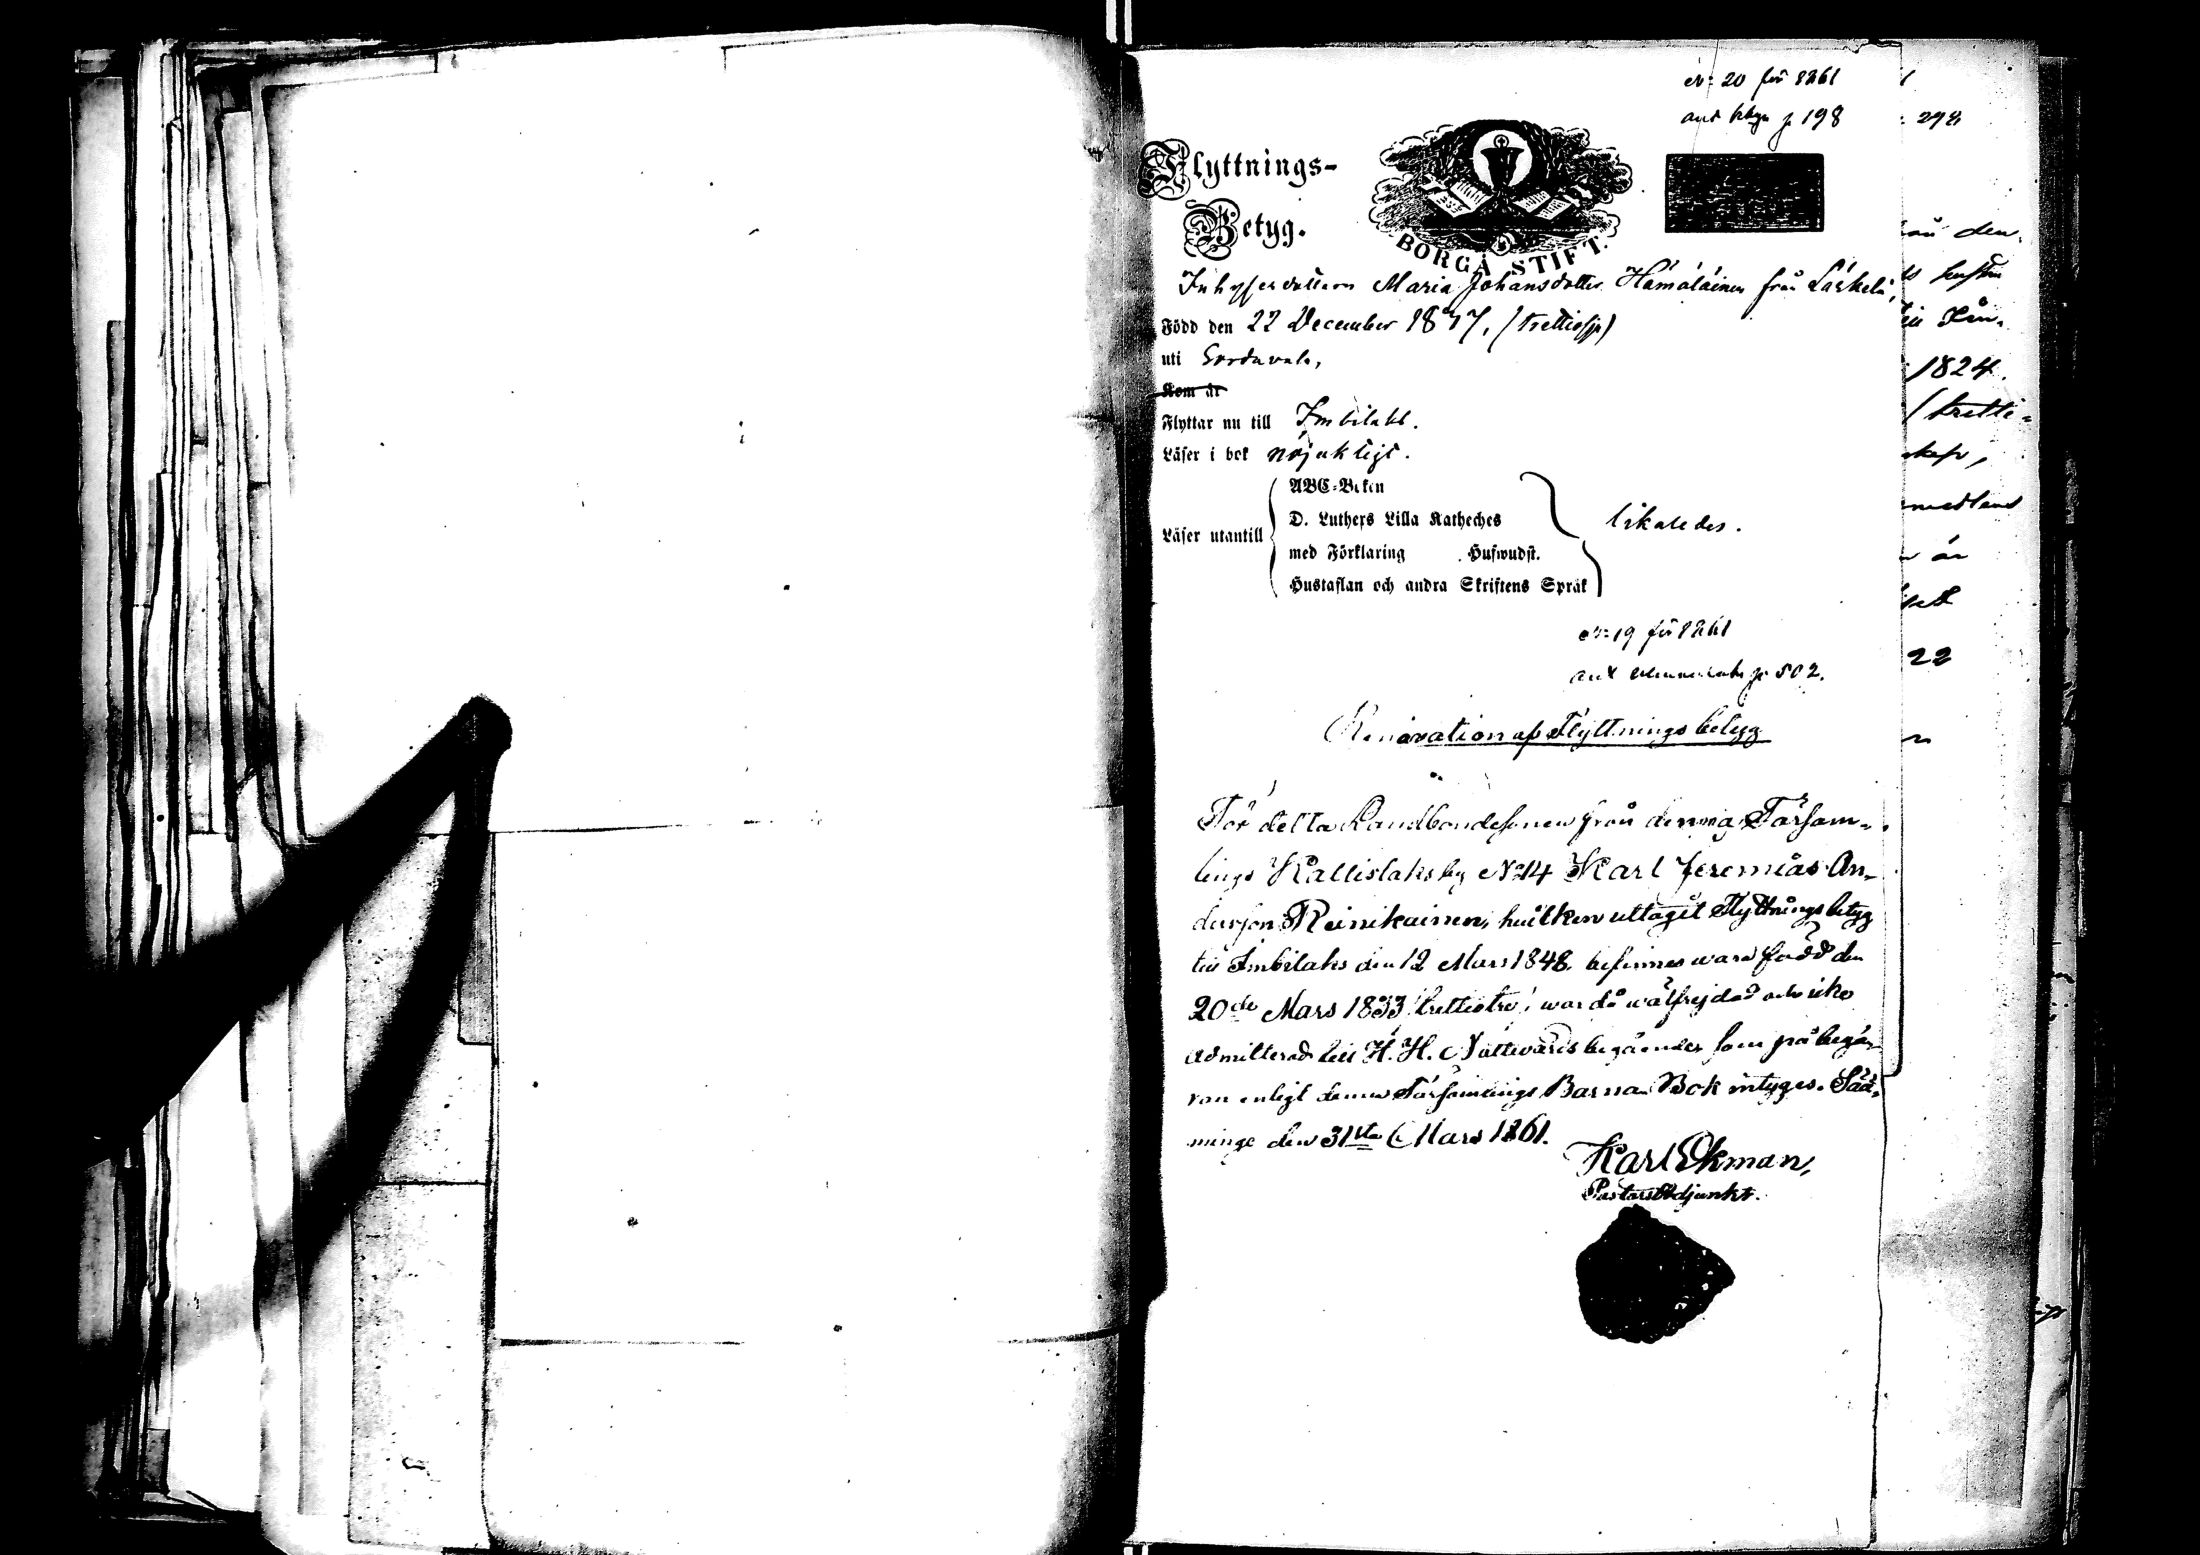 No 20 för 1861
p 198
Flyttnings-
Betyg.
BORGÅ STIFT.
Inhysesdottern Maria Johansdotter Hämäläinen från Läskelä,
Född den 22 December 1837, (trettiosju)
uti Sordavala,
Kom år
Flyttar nu till Imbilaks.
Läser i bok nöjaktigt.
ABC-Boken
D. Luthers Lilla Katheches
Läser utantill
med Förklaring Hufwudst.
Hustaflan och andra Skriftens Språk
likaledes.
No 19 för 1861
p 502.
Renovation af Flyttningsbetyg
För detta Landbondesonen från denna Församlings
lings Kallislaks by No 14 Karl Jeremias An-
dersson Reinikainen, hvilken uttagit Flyttningsbetyg
till Imbilaks den 12 Mars 1848, befinnes vara född den
20de Mars 1833 (trettiotre), war då wälfrejdad och icke
admitterad till H. H. Nattwards begående; som på begä-
ran enligt denna Församlings Barna Bok intygas. Sää-
minge den 31sta Mars 1861.
Karl Ekman,
Pastors Adjunkt.
298
den
1824.
(tretti-
är
22